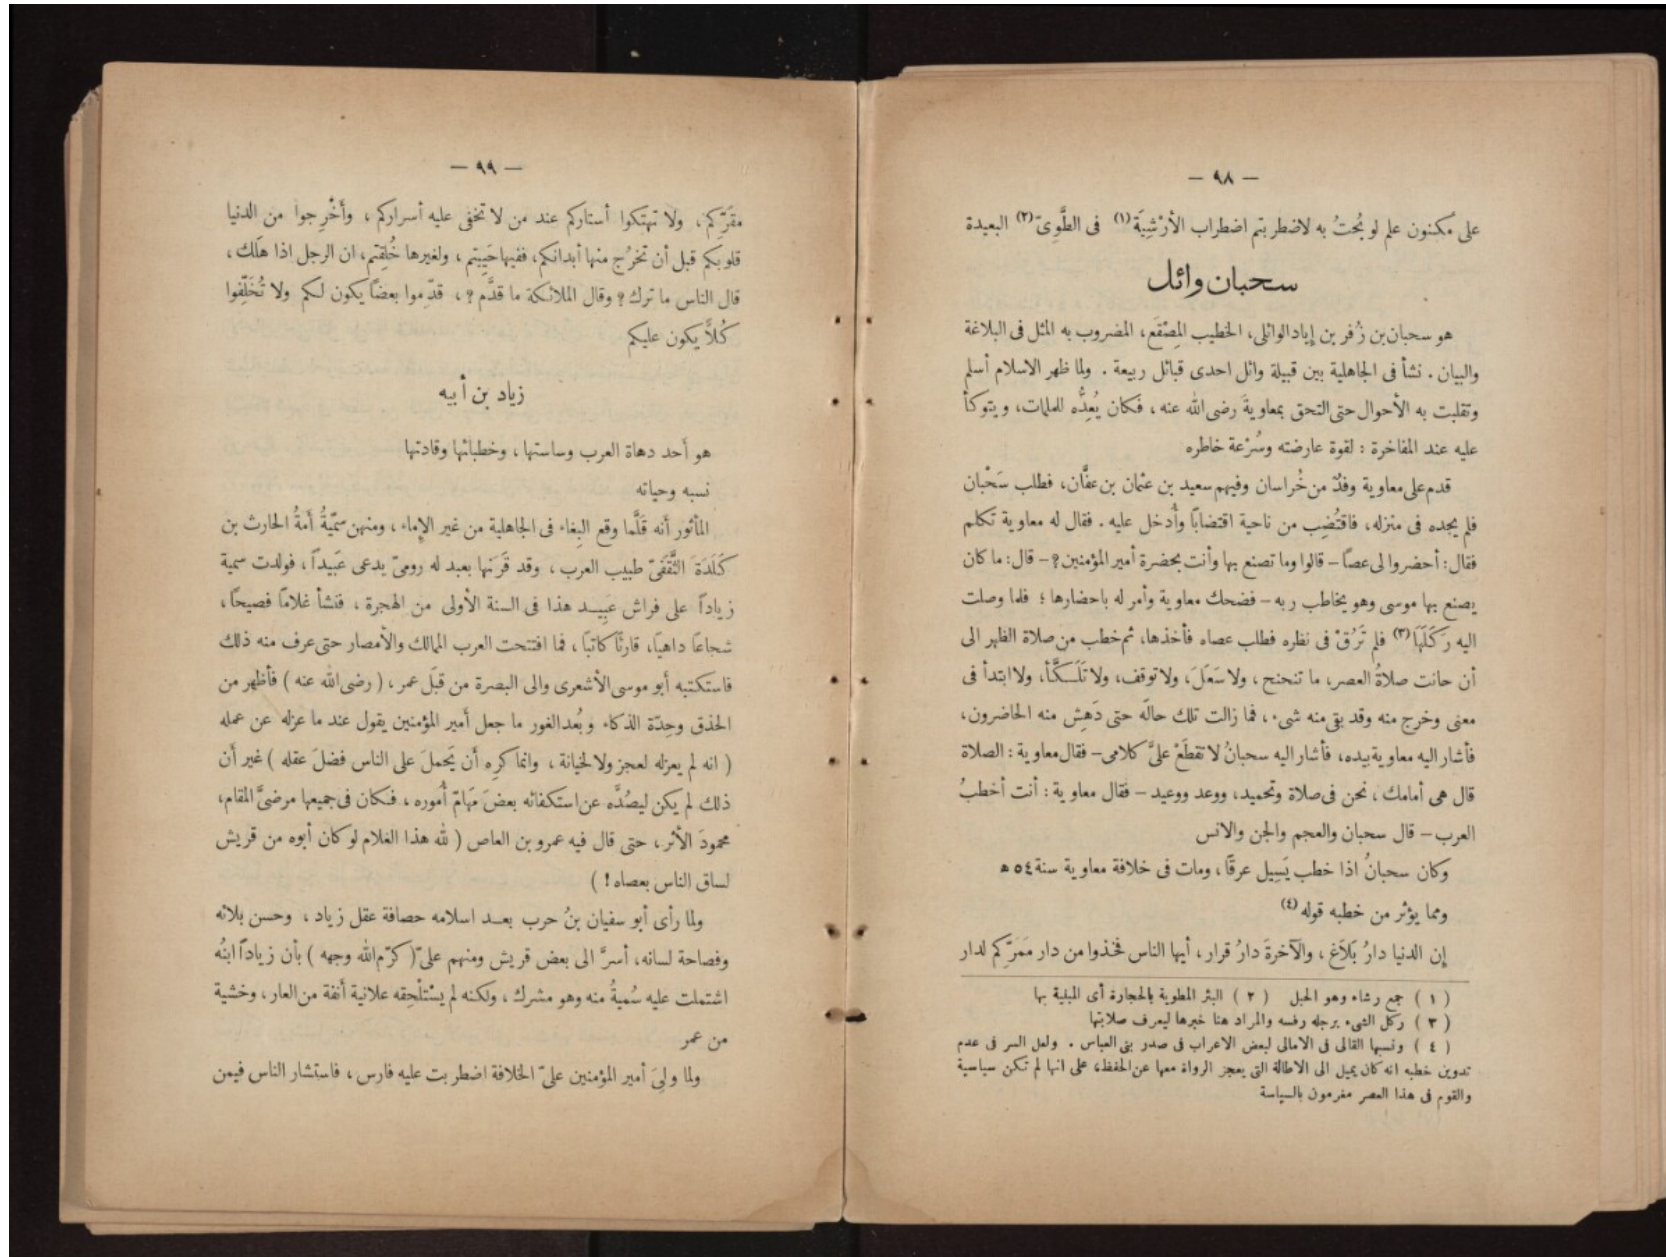 — ٩٨ —
على مكنون علم لو بُحتُ به لاضطربتم اضطراب الأرْشِيَة (١) فى الطَّوِىّ (٢) البعيدة
سحبان وائل
هو سحبان بن زُفر بن إياد الوائلى، الخطيب المِصْقَع، المضروب به المثل فى البلاغة
والبيان . نشأ فى الجاهلية بين قبيلة وائل احدى قبائل ربيعة . ولما ظهر الاسلام أسلم
وتقلبت به الأحوال حتى التحق بمعاويةَ رضى الله عنه ، فكان يُعِدُّه للملمات، ويتوكأ
عليه عند المفاخرة : لقوة عارضته وسُرْعة خاطره
قدم على معاوية وفدٌ من خُراسان وفيهم سعيد بن عثمان بن عفَّان، فطلب سَحْبان
فلم يجده فى منزله، فاقتُضِب من ناحية اقتضابًا وأُدخل عليه . فقال له معاوية تكلم
فقال: أحضروا لى عصًا – قالوا وما تصنع بها وأنت بحضرة أمير المؤمنين؟ – قال: ما كان
يصنع بها موسى وهو يخاطب ربه – فضحك معاوية وأمر له باحضارها ؛ فلما وصلت
اليه رَكَلَهَا (٣) فلم تَرُقْ فى نظره فطلب عصاه فأخذها، ثم خطب من صلاة الظهر الى
أن حانت صلاةُ العصر، ما تنحنح ، ولا سَعَلَ، ولا توقف، ولا تَلَكَّأ، ولا ابتدأ فى
معنى وخرج منه وقد بقى منه شىء ، فما زالت تلك حالَه حتى دَهِش منه الحاضرون،
فأشار اليه معاوية بيده، فأشار اليه سحبانُ لا تقطَعْ علىَّ كلامى – فقال معاوية : الصلاة
قال هى أمامك ، نحن فى صلاة وتحميد، ووعد ووعيد – فقال معاوية : أنت أخطبُ
العرب – قال سحبان والعجم والجن والانس
وكان سحبانُ اذا خطب يَسِيل عرقًا ، ومات فى خلافة معاوية سنة ٥٤ ه
ومما يؤثر من خطبه قوله (٤)
إن الدنيا دارُ بَلاَغ ، والآخرةَ دارُ قرار ، أيها الناس فخذوا من دار مَمَرّكم لدار
( ١ ) جمع رشاء وهو الحبل ( ٢ ) البئر المطوية بالحجارة أى المبنية بها
( ٣ ) ركل الشىء برجله رفسه والمراد هنا خبرها ليعرف صلابتها
( ٤ ) ونسبها القالى فى الامالى لبعض الاعراب فى صدر بنى العباس . ولعل السر فى عدم
تدوين خطبه انه كان يميل الى الاطالة التى يعجز الرواة معها عن الحفظ، على انها لم تكن سياسية
والقوم فى هذا العصر مغرمون بالسياسة
— ٩٩ —
مقَرّكم، ولا تهتكوا أستاركم عند من لا تخفى عليه أسراركم ، وأَخْرِجوا من الدنيا
قلوبكم قبل أن تخرُج منها أبدانكم، ففيها حَيِيتم ، ولغيرها خُلِقتم، ان الرجل اذا هَلَك،
قال الناس ما ترك ؟ وقال الملائكة ما قدَّم ؟ ، قدِّموا بعضًا يكون لكم ولا تُخَلِّفوا
كُلاًّ يكون عليكم
زياد بن أبيه
هو أَحد دهاة العرب وساستها ، وخطبائها وقادتها
نسبه وحياته
المأثور أنه قَلَّما وقع البِغاء فى الجاهلية من غير الإماء ، ومنهن سمَيّةُ أَمةُ الحارث بن
كَلَدَةَ الثَّقَفىّ طبيب العرب ، وقد قَرَنها بعبد له رومىّ يدعى عَبيداً ، فولدت سمية
زياداً على فراش عَبِيد هذا فى السنة الأولى من الهجرة ، فنشأ غلامًا فصيحًا،
شجاعًا داهيًا، قارئًا كاتبًا ، فما افتتحت العرب الممالك والأمصار حتى عرف منه ذلك
فاستكتبه أبو موسى الأشعرى والى البصرة من قبَل عمر ، (رضى الله عنه ) فأظهر من
الحذق وحِدّة الذكاء وبُعد الغور ما جعل أمير المؤمنين يقول عند ما عزله عن عمله
( انه لم يعزله لعجز ولا لخيانة ، وانما كرِه أَن يَحملَ على الناس فضلَ عقله ) غير أَن
ذلك لم يكن ليصُدَّه عن استكفائه بعضَ مَهامّ أُموره ، فكان فى جميعها مرضىَّ المقام،
محمودَ الأثر، حتى قال فيه عمرو بن العاص ( لله هذا الغلام لو كان أبوه من قريش
لساق الناس بعصاه ! )
ولما رأى أبو سفيان بنُ حرب بعد اسلامه حصافة عقل زياد ، وحسن بلائه
وفصاحة لسانه، أسرَّ الى بعض قريش ومنهم علىّ (كرّم الله وجهه ) بأن زياداً ابنُه
اشتملت عليه سُميةُ منه وهو مشرك ، ولكنه لم يسْتلْحِقه علانية أنفة من العار، وخشية
من عمر
ولما ولِىَ أمير المؤمنين علىّ الخلافة اضطربت عليه فارس ، فاستشار الناس فيمن